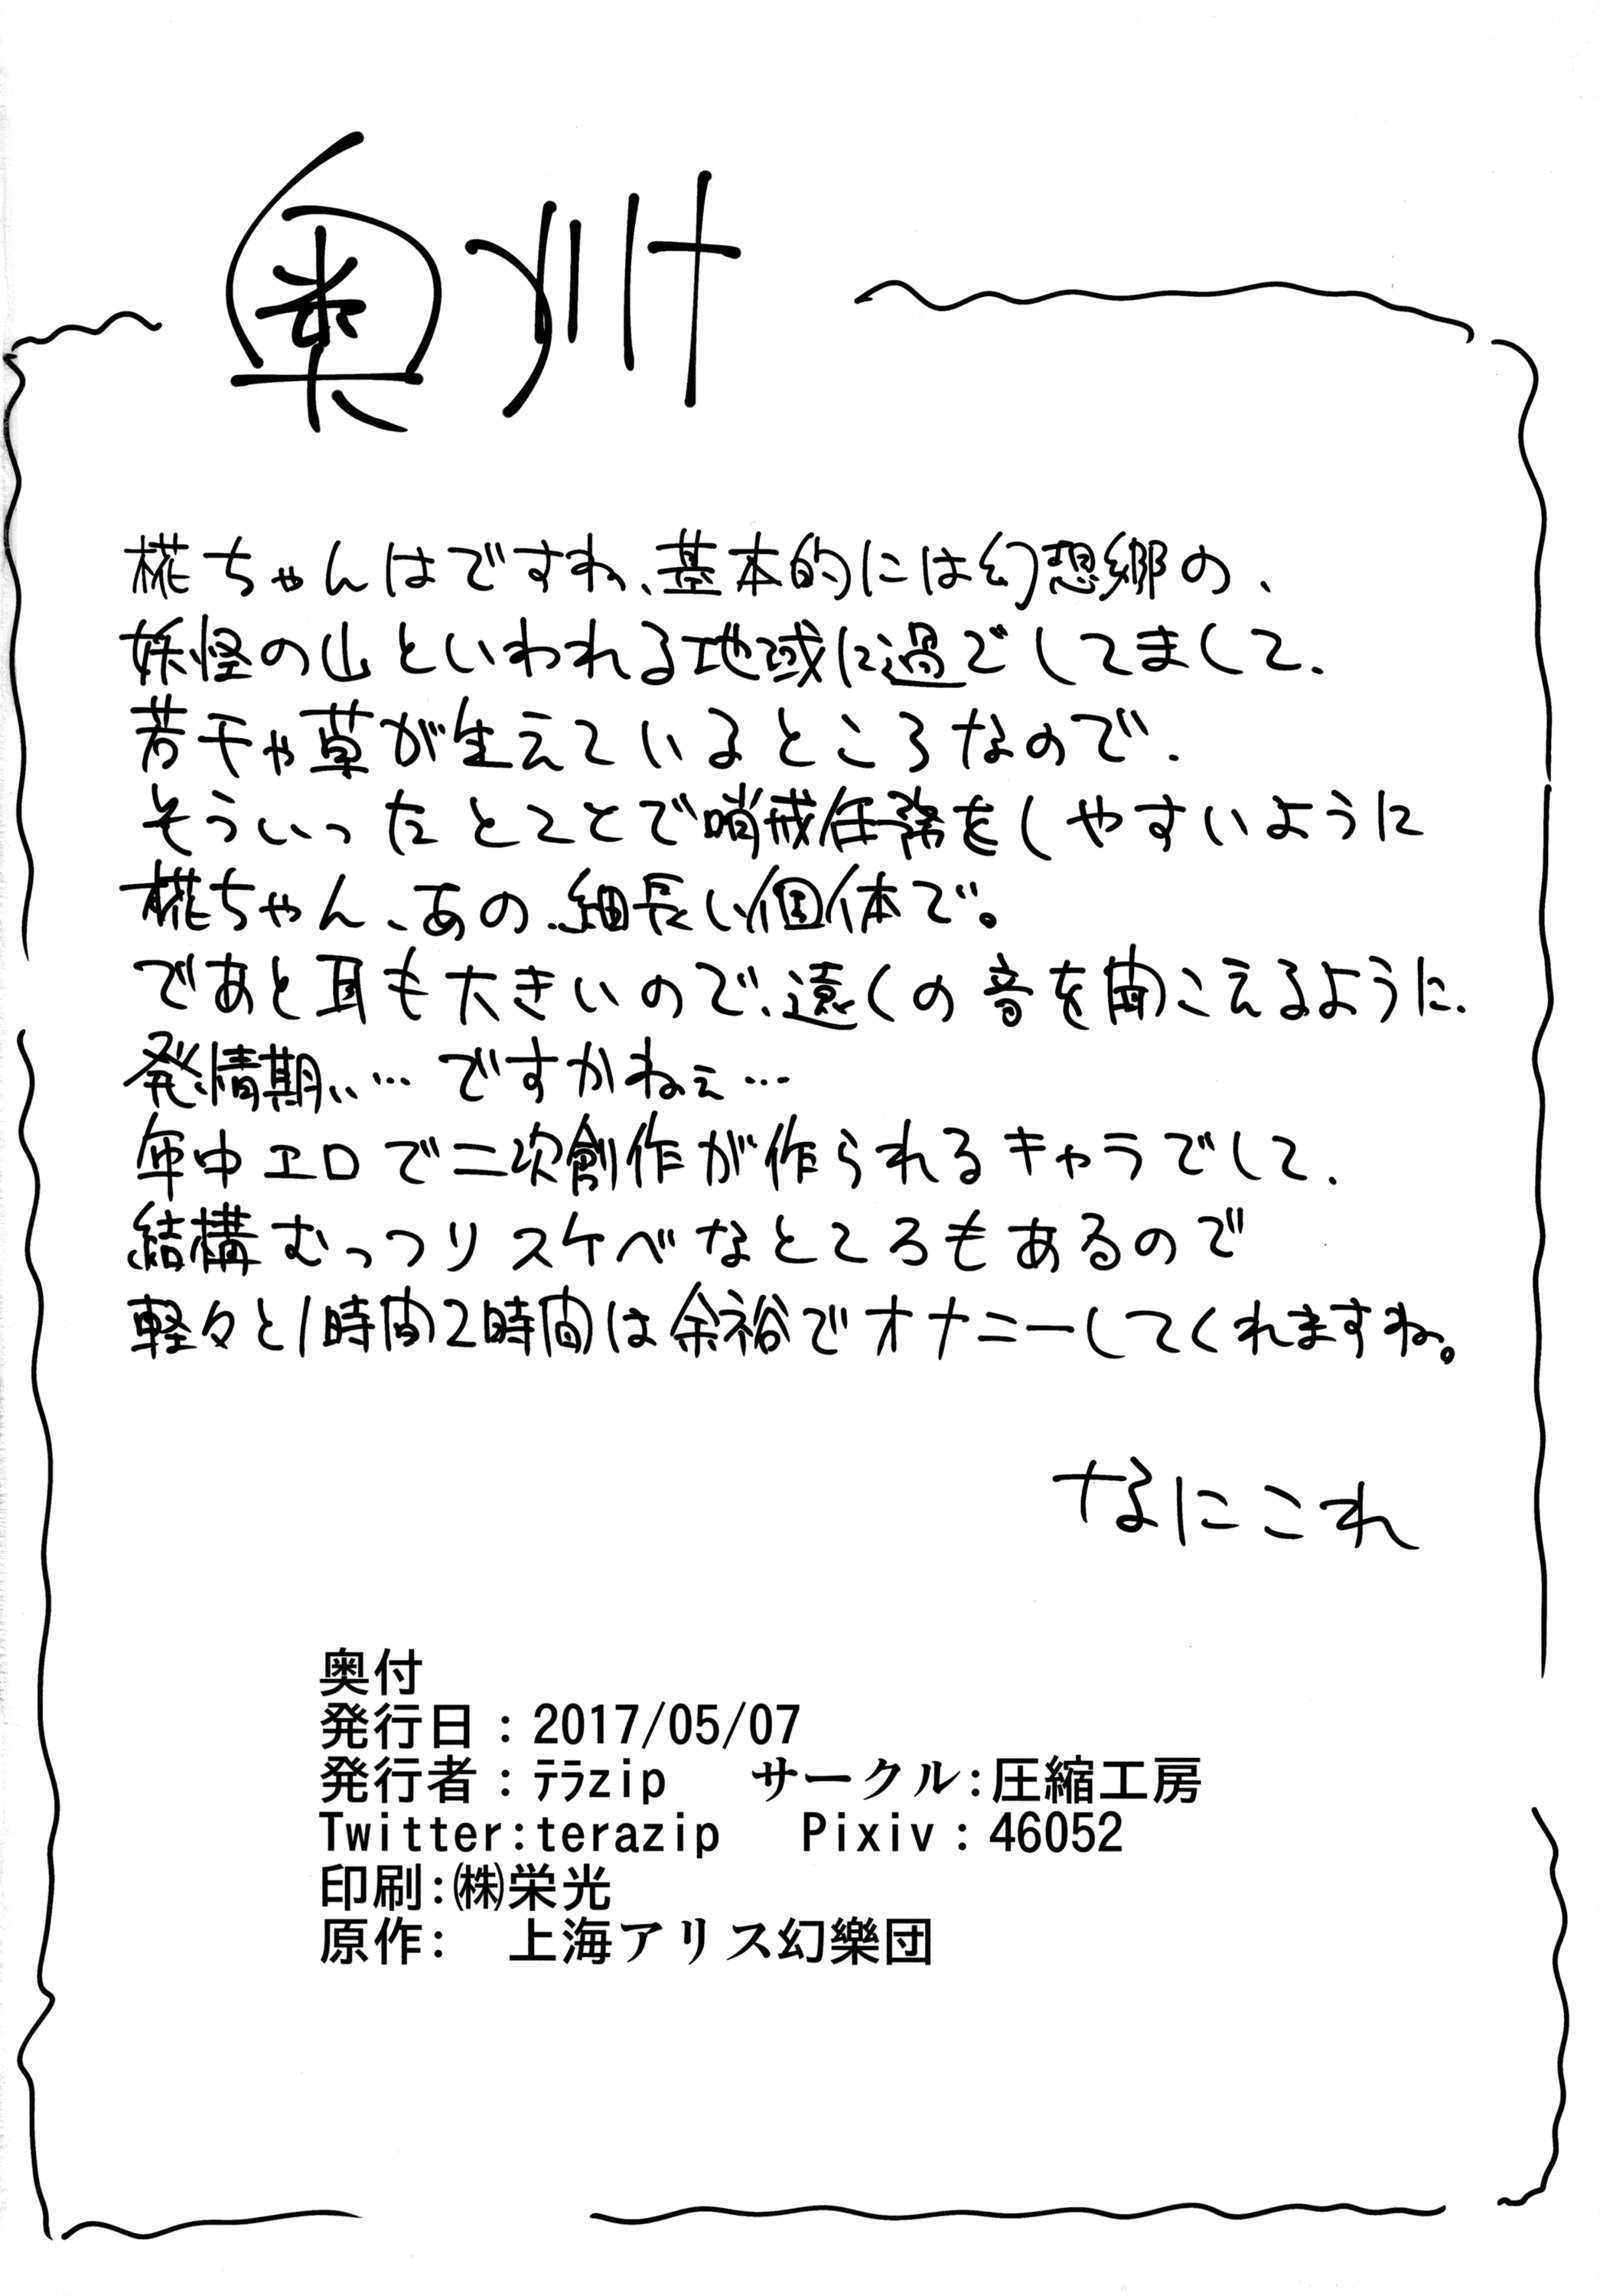 奥付
椛ちゃんはですね、基本的には幻想郷の、
妖怪の山といわれる地域に過でしてまして、
若干や草が生えているところなので、
そういったとことで哨戒任務をしやすいように
椛ちゃん、あの、細長い個体で。
であと耳も大きいので、遠くの音を聞こえるように、
発情期ぃ…ですかねぇ…
年中エロで二次創作が作られるキャラでして、
結構むっつりスケベなところもあるので
軽々と1時間2時間は余裕でオナニーしてくれますね。
なにこれ
奥付
発行日：2017/05/07
発行者：ﾃﾗzip サークル：圧縮工房
Twitter:terazip Pixiv：46052
印刷：㈱栄光
原作： 上海アリス幻樂団